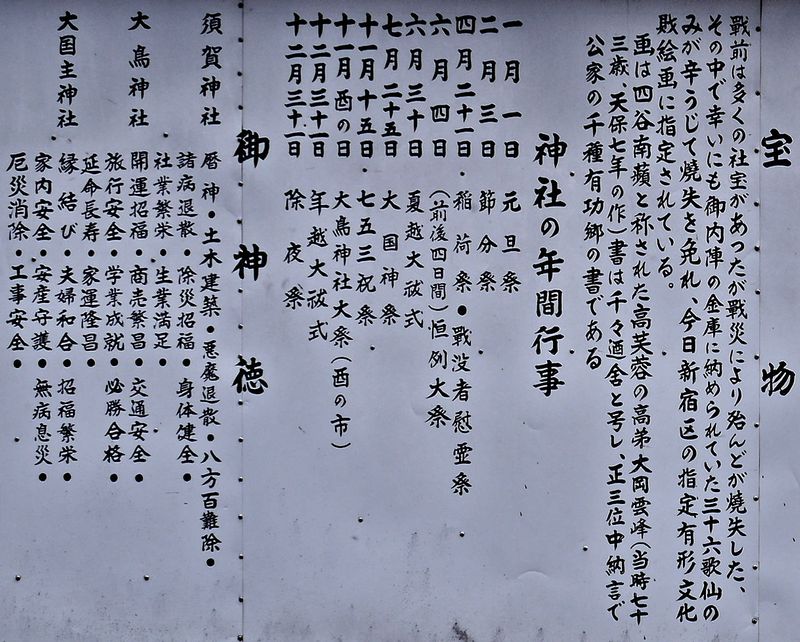 宝物
戰前は多くの社宝があったが戰災により殆んどが焼失した、
その中で幸いにも御内陣の金庫に納められていた三十六歌仙の
みが辛うじて焼失を免れ、今日新宿区の指定有形文化
財絵画に指定されている。
画は四谷南蘋と称された高芙蓉の高弟大岡雲峰(当時七十
三歳、天保七年の作)書は千々廼舎と号し、正三位中納言で
公家の千種有功郷の書である
神社の年間行事
一月一日 元旦祭
二月三日 節分祭
四月二十一日 稲荷祭・戰没者慰霊祭
六月四日 (前後四日間)恒例大祭
六月三十日 夏越大祓式
七月二十五日 大国神祭
十一月十五日 七五三祝祭
十一月酉の日 大鳥神社大祭(酉の市)
十二月三十一日 年越大祓式
十二月三十一日 除夜祭
御神徳
須賀神社 暦神・土木建築・悪魔退散・八方百難除・
諸病退散・除災招福・身体健全・
社業繁栄・生業満足・
大鳥神社 開運招福・商売繁昌・交通安全・
旅行安全・学業成就・必勝合格・
延命長寿・家運隆昌・
大国主神社 縁結び・夫婦和合・招福繁栄・
家内安全・安産守護・無病息災・
厄災消除・工事安全・